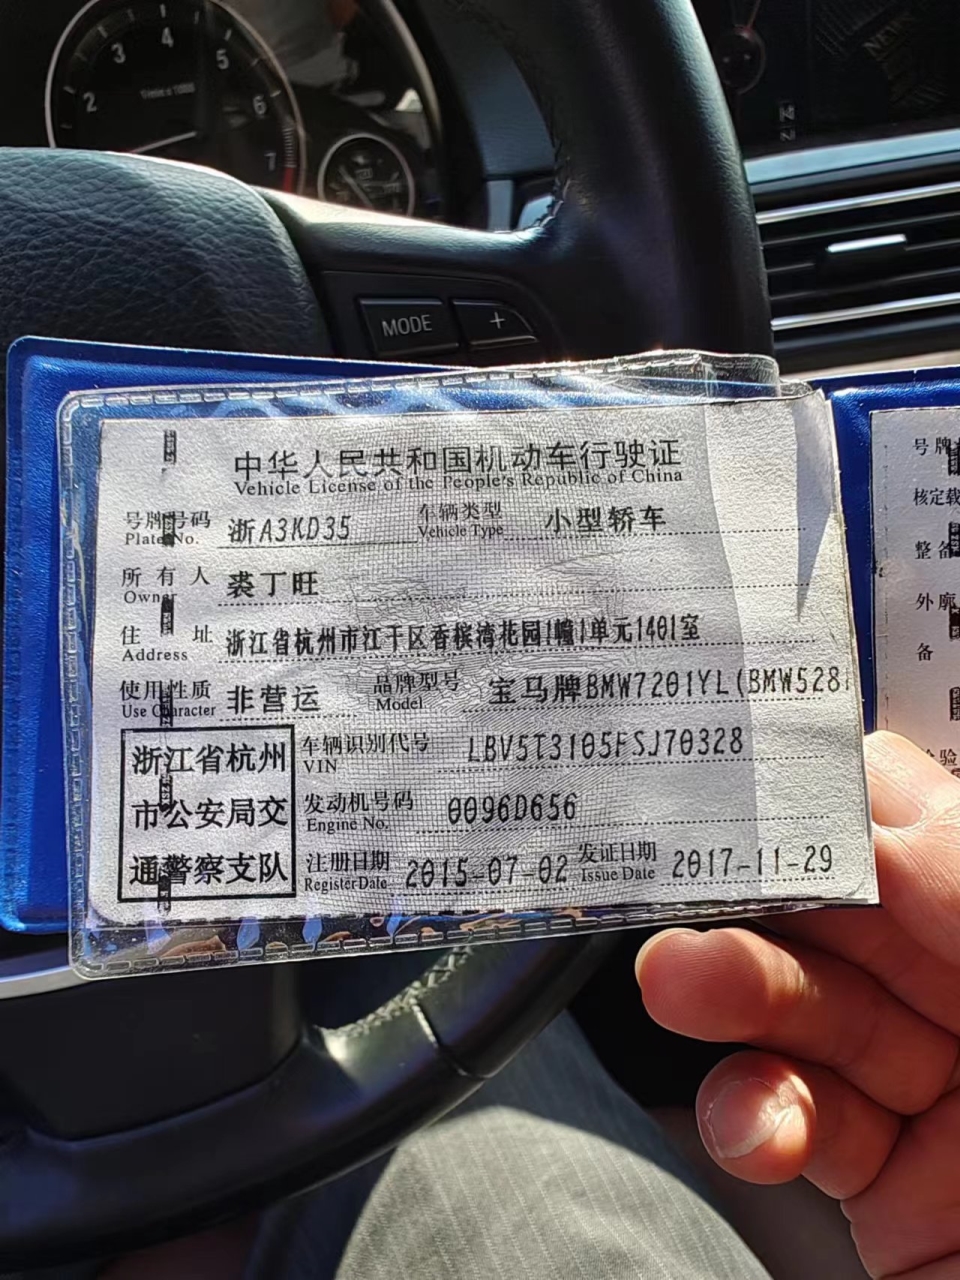 3 4 5
2 1/min x 1000 6
7
MODE +
中华人民共和国机动车行驶证
Vehicle License of the People's Republic of China
号牌号码 浙A3KD35 车辆类型 小型轿车
Plate No. Vehicle Type
所有人 裘丁旺
Owner
住址 浙江省杭州市江干区香槟湾花园1幢1单元1401室
Address
使用性质 非营运 品牌型号 宝马牌BMW7201YL(BMW528
Use Character Model
浙江省杭州
市公安局交
通警察支队
车辆识别代号 LBV5T3105FSJ70328
VIN
发动机号码 0096D656
Engine No.
注册日期 2015-07-02 发证日期 2017-11-29
Register Date Issue Date
号牌
核定载
整备
外廓
备
检验